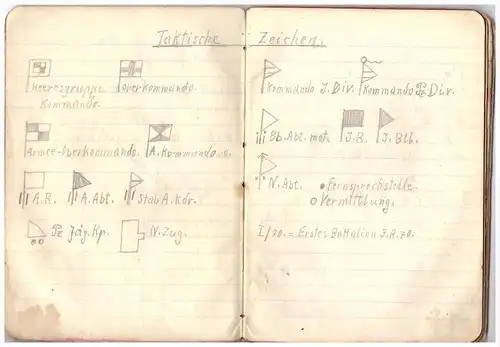 Taktische Zeichen.
Heeresgruppe Kommando.
Oberkommando.
Armee-Oberkommando.
A. Kommando
A.R.
A. Abt.
Stab A. Kdr.
Pz Jäg. Kp.
N. Zug.
Kommando J. Div.
Kommando Pz. Div.
Bb. Abt. mot.
J.R.
J. Btl.
N. Abt.
Fernsprechstelle.
Vermittlung.
I/70. = Erstes Battalion J.R. 70.